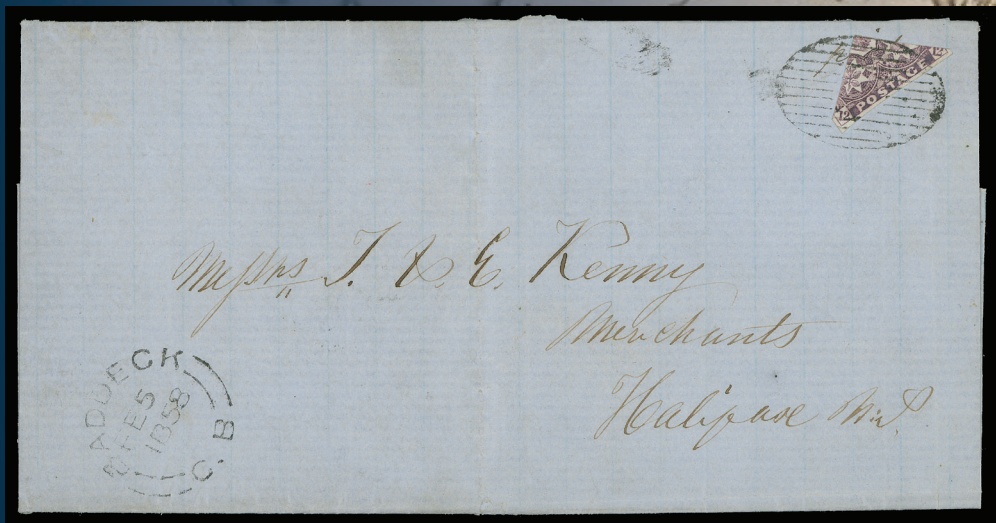 12 POSTAGE 12
Messrs T. & E. Kenny
Merchants
Halifax
BADDECK
FE 5
1858
C. B